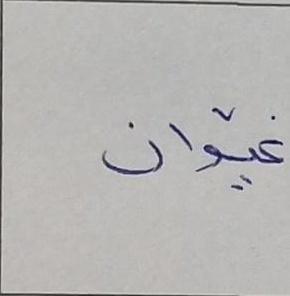 غێوان